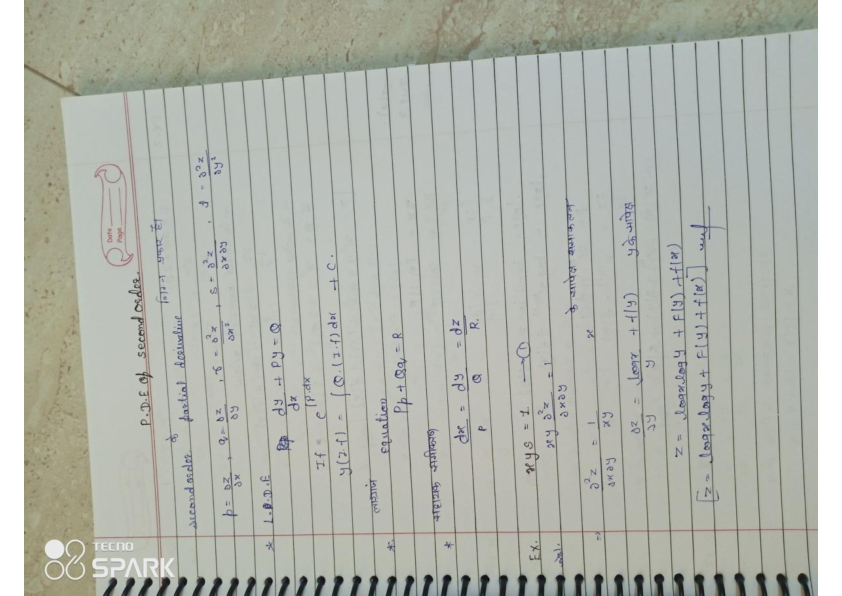 Date
Page
P.D.E of second order.
second order के partial derivative निम्न प्रकार है।
p = ∂z/∂x , q = ∂z/∂y , r = ∂²z/∂x² , s = ∂²z/∂x∂y , t = ∂²z/∂y²
* L.D.E dy/dx + Py = Q
I.f = e^∫P.dx
y(I.f) = ∫Q.(I.f) dx + C.
लाग्रांज Equation
* Pp + Qq = R
* सहायक समीकरण
dx/P = dy/Q = dz/R.
Ex. xys = 1. —①
Sol. xy ∂²z/∂x∂y = 1
⇒ ∂²z/∂x∂y = 1/xy x के सापेक्ष समाकलन
∂z/∂y = logx/y + f(y) y के सापेक्ष
z = logx logy + F(y) + f(x)
[z = logx logy + F(y) + f(x)]
TECNO
SPARK